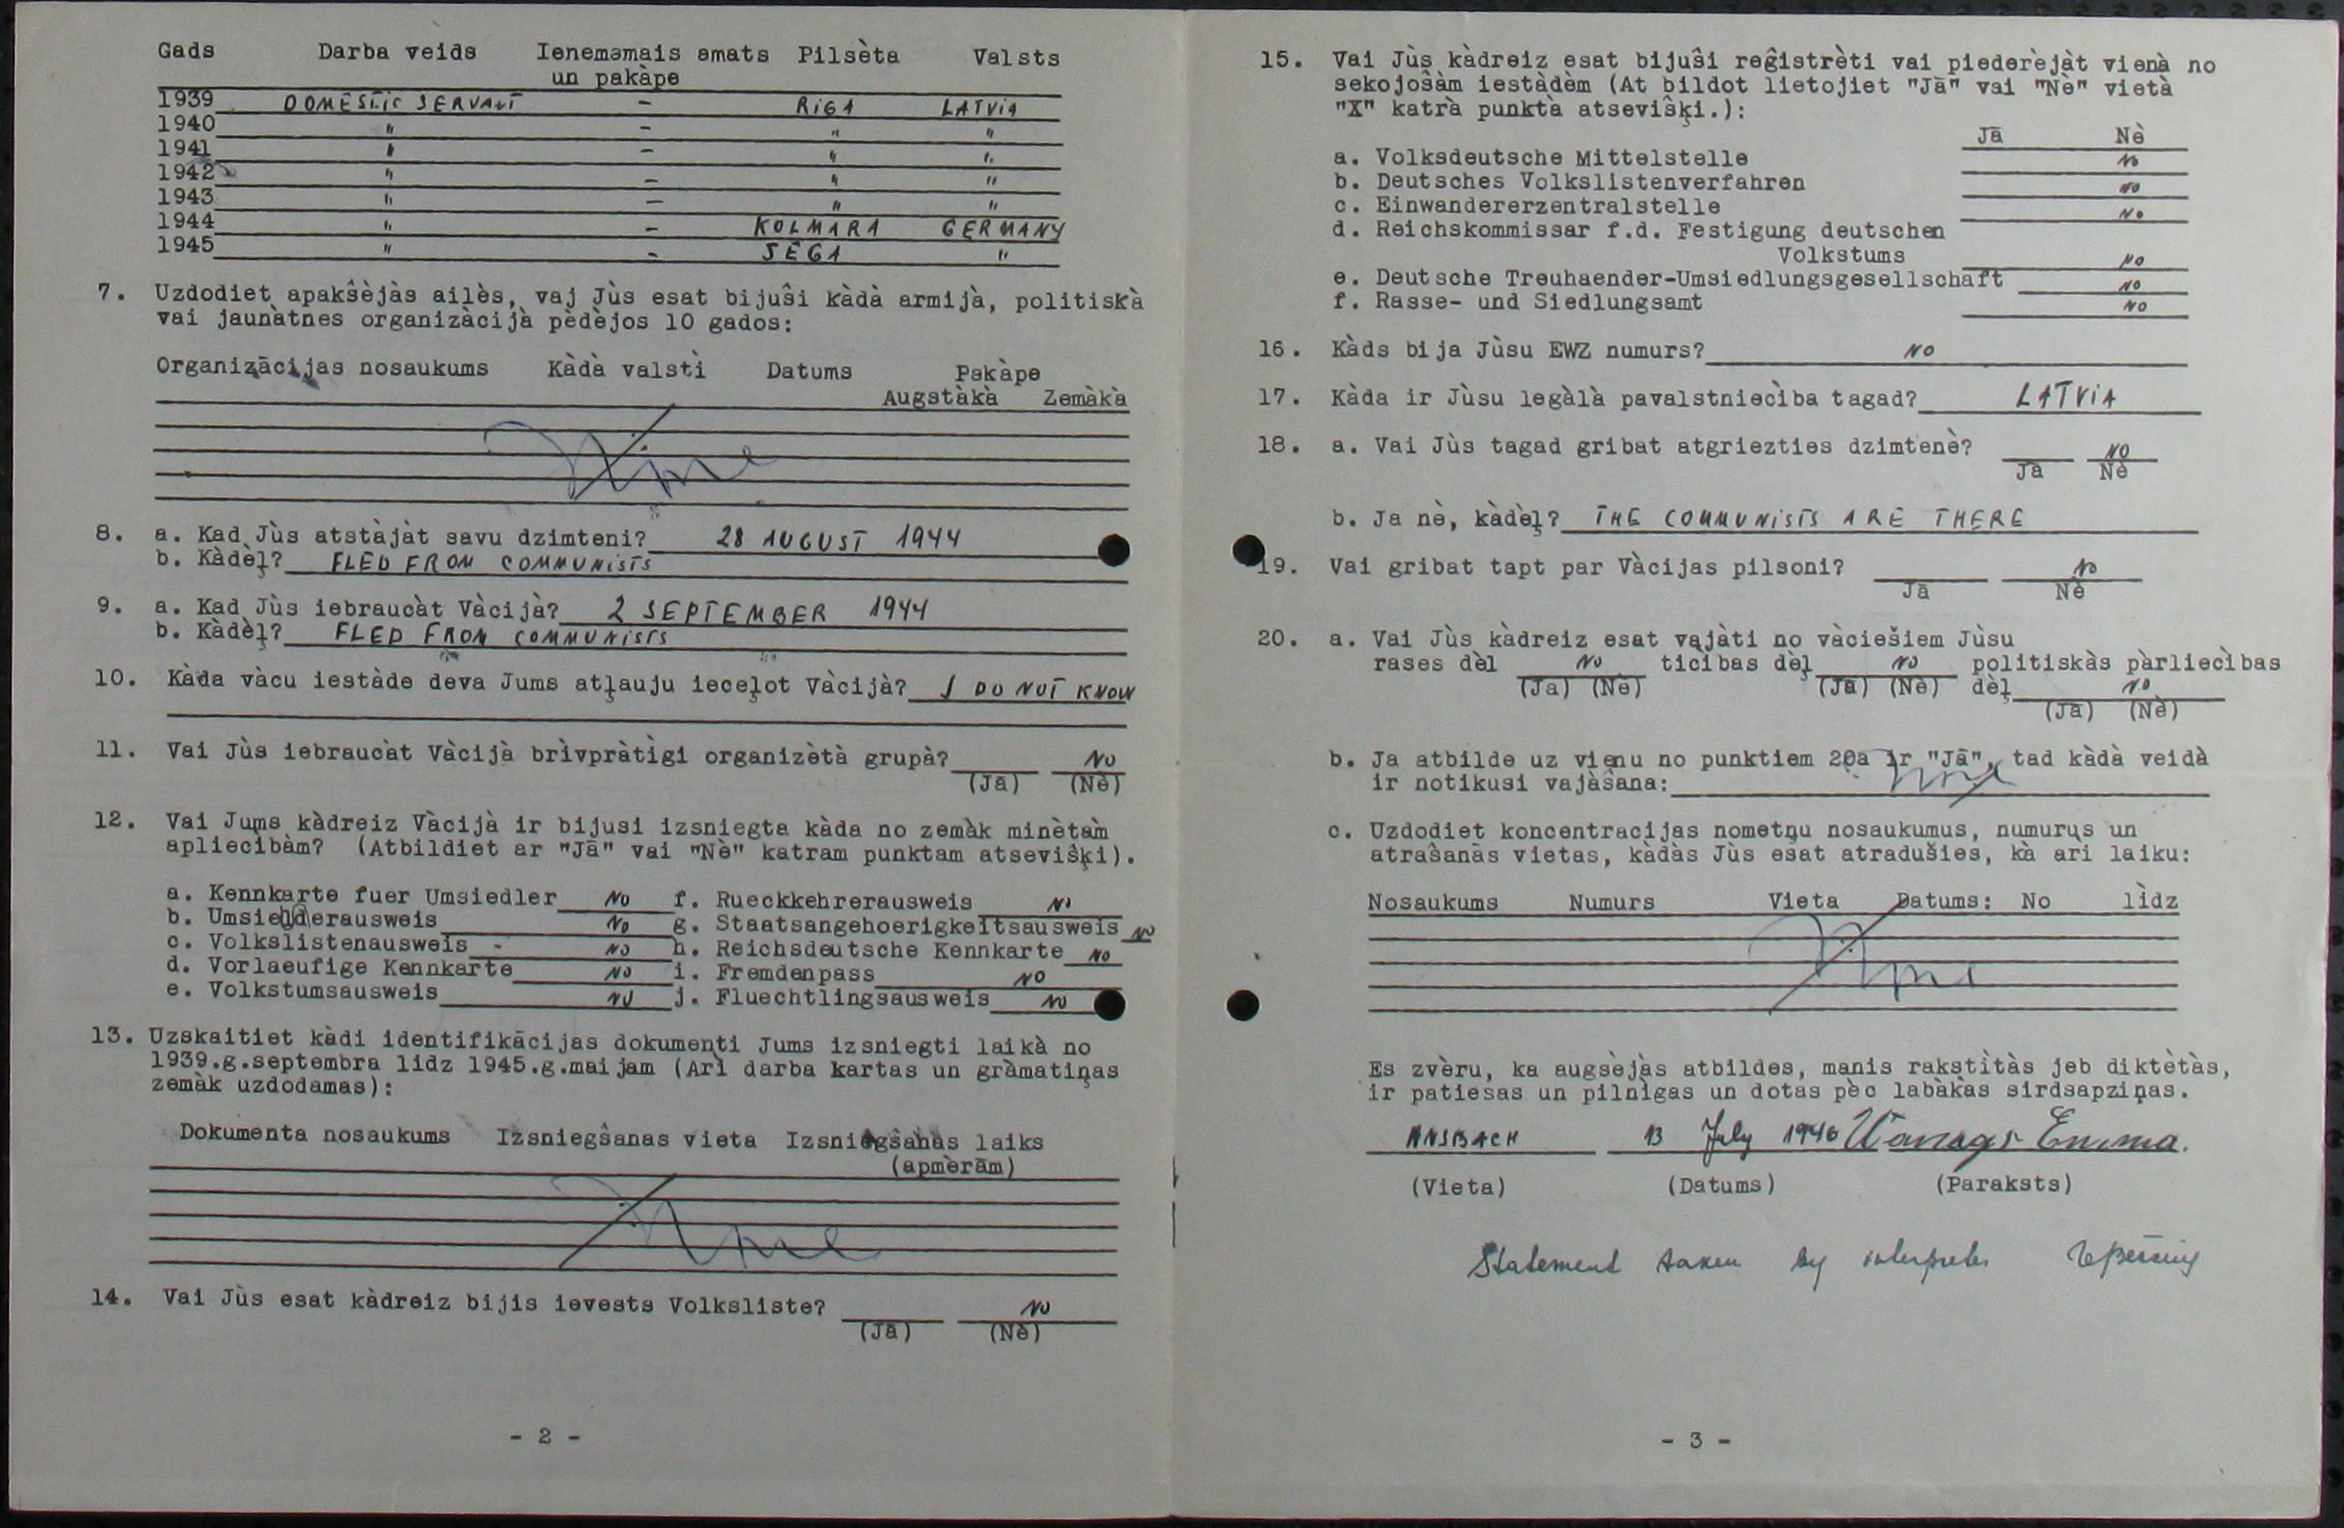 Gads Darba veids Ieņemamais amats Pilsèta Valsts
un pakàpe
1939 DOMESTIC SERVANT - RIGA LATVIA
1940 " - " "
1941 " - " "
1942 " - " "
1943 " - " "
1944 " - KOLMARA GERMANY
1945 " - SEGA "
7. Uzdodiet apakŝèjàs ailès, vaj Jùs esat bijuŝi kàdà armijà, politiskà
vai jaunàtnes organizàcijà pèdèjos 10 gados:
Organizācijas nosaukums Kàdà valstì Datums Pakàpe
Augstàkà Zemàkà
None
8. a. Kad Jùs atstàjàt savu dzimteni? 28 AUGUST 1944
b. Kàdèļ? FLED FROM COMMUNISTS
9. a. Kad Jùs iebraucàt Vàcijà? 2 SEPTEMBER 1944
b. Kàdèļ? FLED FROM COMMUNISTS
10. Kàda vàcu iestàde deva Jums atļauju ieceļot Vàcijà? I DO NOT KNOW
11. Vai Jùs iebraucàt Vàcijà brìvpràtìgi organizètà grupà? NO
(Jā) (Nè)
12. Vai Jums kàdreiz Vàcijà ir bijusi izsniegta kàda no zemàk minètam
apliecibàm? (Atbildiet ar "Jā" vai "Nè" katram punktam atseviŝķi).
a. Kennkarte fuer Umsiedler NO f. Rueckkehrerausweis NO
b. Umsiedlerausweis NO g. Staatsangehoerigkeitsausweis NO
c. Volkslistenausweis - NO h. Reichsdeutsche Kennkarte NO
d. Vorlaeufige Kennkarte NO i. Fremdenpass NO
e. Volkstumsausweis NO j. Fluechtlingsausweis NO
13. Uzskaitiet kàdi identifikācijas dokumenţi Jums izsniegti laikà no
1939.g.septembra lidz 1945.g.maijam (Arì darba kartas un gràmatiņas
zemàk uzdodamas):
Dokumenta nosaukums Izsniegŝanas vieta Izsniegŝanas laiks
(apmèrām)
None
14. Vai Jùs esat kàdreiz bijis ievests Volksliste? NO
(Jā) (Nè)
- 2 -
15. Vai Jùs kàdreiz esat bijuŝi reĝistrèti vai piederèjàt vienà no
sekojoŝàm iestàdèm (Atbildot lietojiet "Jā" vai "Nè" vietà
"X" katrà punktà atseviŝķi.):
Jā Nè
a. Volksdeutsche Mittelstelle NO
b. Deutsches Volkslistenverfahren NO
c. Einwandererzentralstelle NO
d. Reichskommissar f.d. Festigung deutschen
Volkstums NO
e. Deutsche Treuhaender-Umsiedlungsgesellschaft NO
f. Rasse- und Siedlungsamt NO
16. Kàds bija Jùsu EWZ numurs? NO
17. Kàda ir Jùsu legàlà pavalstniecìba tagad? LATVIA
18. a. Vai Jùs tagad gribat atgriezties dzimtenè? NO
Jā Nè
b. Ja nè, kàdèļ? THE COMMUNISTS ARE THERE
19. Vai gribat tapt par Vàcijas pilsoni? NO
Jā Nè
20. a. Vai Jùs kàdreiz esat vajàti no vàciešiem Jùsu
rases dèl NO ticìbas dèļ NO politiskàs pàrliecìbas
(Jā) (Nè) (Jā) (Nè) dèļ NO
(Jā) (Nè)
b. Ja atbilde uz vienu no punktiem 20a ir "Jā", tad kàdà veidà
ir notikusi vajàŝana: None
c. Uzdodiet koncentracijas nometņu nosaukumus, numurus un
atraŝanās vietas, kàdàs Jùs esat atradušies, kà ari laiku:
Nosaukums Numurs Vieta Datums: No lìdz
None
Es zvèru, ka augsèjàs atbildes, manis rakstìtàs jeb diktètàs,
ir patiesas un pilnìgas un dotas pèc labàkas sirdsapziņas.
ANSBACH 13 July 1946 Wanags Emma.
(Vieta) (Datums) (Paraksts)
Statement taken by interpreter
- 3 -